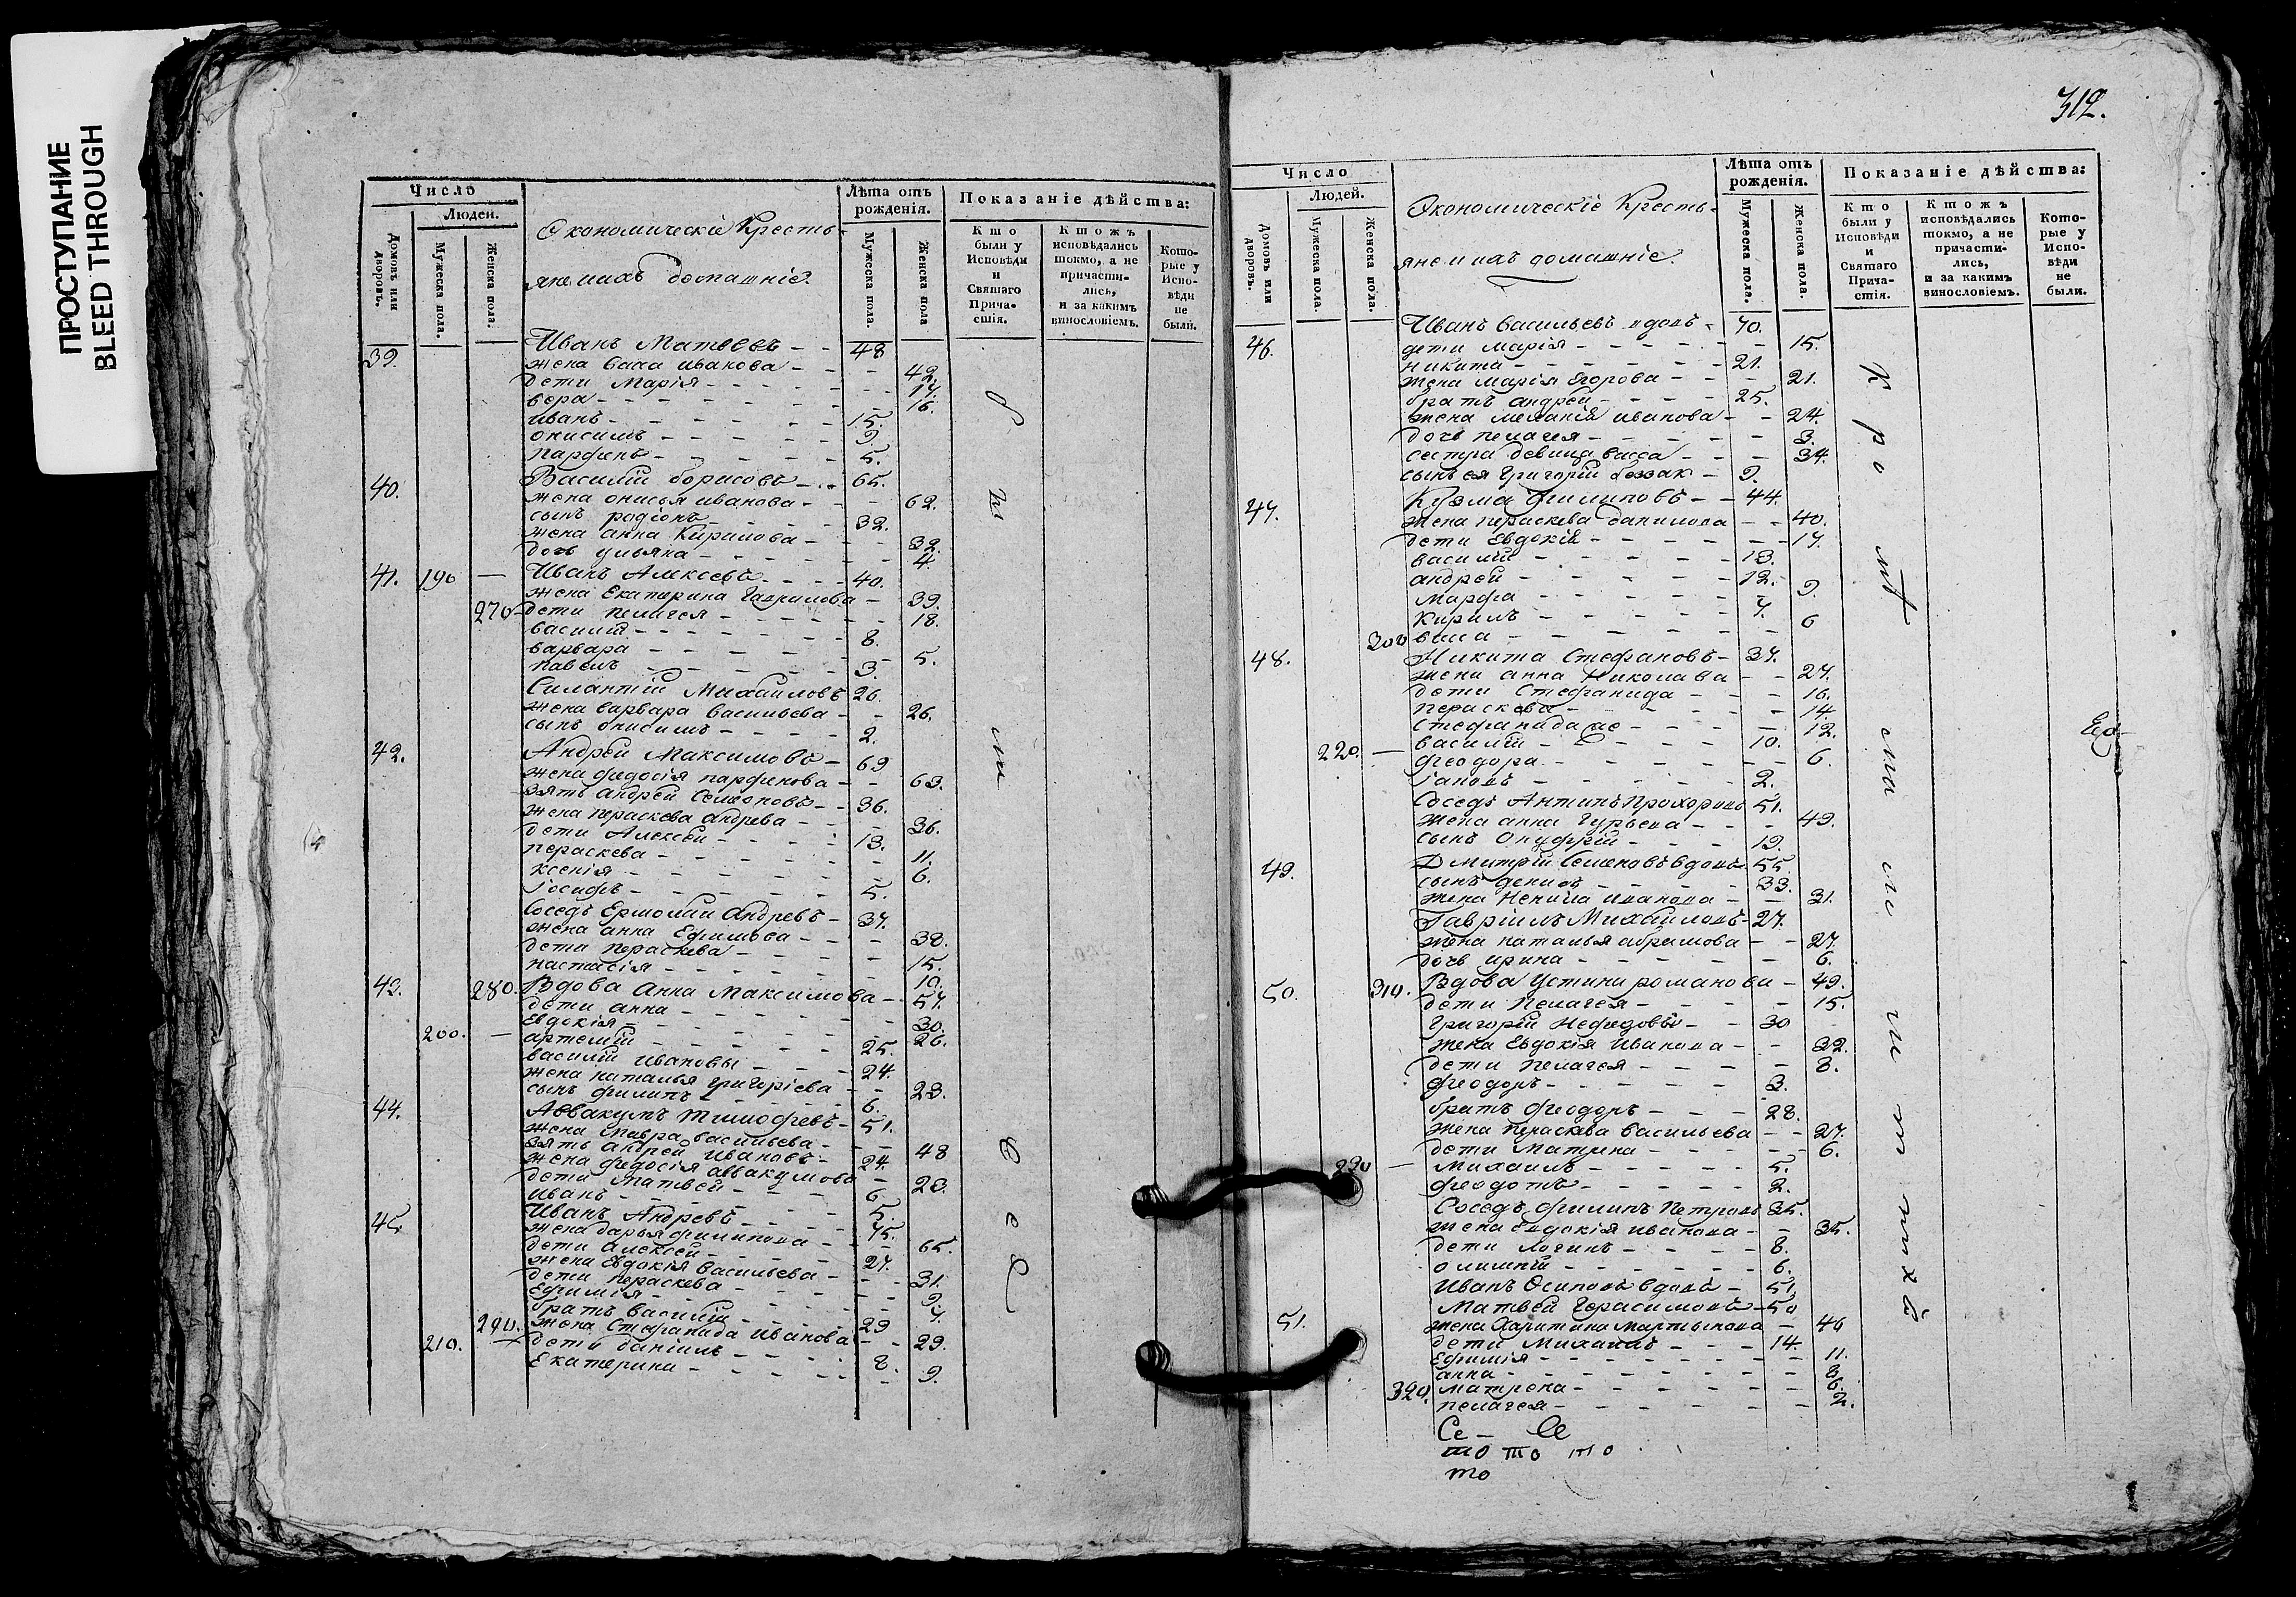 ПРОСТУПАНИЕ
BLEED THROUGH
Число
Людей.
Домовъ или дворовъ.
Мужеска пола.
Женска пола.
Экономическіе Кресть-
яне и ихъ домашніе.
Лѣта отъ рожденія.
Мужеска пола.
Женска пола
Показаніе дѣйства:
Кто были у Исповѣди и Святаго Прича-стія.
Ктожъ исповѣдались токмо, а не причасти-лись, и за какимъ винословіемъ.
Кото-рые у Испо-вѣди не были.
39. Иванъ Матвеевъ 48
жена васа иванова 42.
дети Марія 17.
вера 16.
иванъ 15.
онисимъ 9.
парфенъ 5.
40. Василій борисовъ 65.
жена онисья иванова 62.
сынъ радіонъ 32.
жена анна Кирилова 32.
дочь ульяна 4.
41. 190 Иванъ Алксевъ 40.
жена Екатерина Гаврилова 39.
270 дети пелагея 18.
василій 8.
варвара 5.
павелъ 3.
Силантій Михаиловъ 26.
жена варвара васильева 26.
сынъ онисимъ 2.
42. Андрей Максимовъ 69
жена федосія парфенова 63.
зять андрей Семеновъ 36.
жена пераскева андрева 36.
дети Алексей 13.
пераскева 11.
ксенія 6.
іосифъ 5.
Соседъ Ермолай андревъ 37.
жена анна Ефимова 38.
дети пераскева 15.
настасія 10.
43. 280. Вдова Анна Максимова 57.
дети анна 30.
Евдокія 26.
200. артемій 25.
василій ивановы 24.
жена наталья григоріева 23.
сынъ филипъ 6.
44. Аввакумъ Тимофевъ 51.
жена мавра васильева 48
зять андрей ивановъ 24.
жена федосія аввакумова 23.
дети Матвей 6
иванъ 5.
45. Иванъ Андревъ 75.
жена дарья филипова 65.
дети алексей 27.
жена Евдокія васильева 31.
дети пераскева 9.
Ефимія 7.
братъ василій 29
290. жена Стефанида Иванова 29.
210. дети даніилъ 8.
Екатерина 9.
312.
Число
Людей.
Домовъ или дворовъ.
Мужеска пола.
Женска пола.
Экономическіе Кресть-
яне и ихъ домашніе.
Лѣта отъ рожденія.
Мужеска пола.
Женска пола.
Показаніе дѣйства:
Кто были у Исповѣди и Святаго Прича-стія.
Ктожъ исповѣдались токмо, а не причасти-лись, и за какимъ винословіемъ.
Кото-рые у Испо-вѣди не были.
46. Иванъ васильевъ вдовъ 70.
дети марія 15.
никита 21.
жена марія Егорова 21.
братъ андрей 25.
жена меланія иванова 24.
дочь пелагея 3.
сестра девица васса 34.
сынъ ея григорій 9.
47. Кузма филиповъ 44.
жена пераскева данилова 40.
дети Евдокія 17.
василій 13.
андрей 12.
марфа 9.
Кирилъ 7.
300 васа 6
48. Никита Стефановъ 37.
жена анна Николаева 27.
дети Стефанида 16.
пераскева 14.
Стефанида 12.
220. василій 10.
феодора 6.
2.
Соседъ Антипъ Прохоровъ 51.
жена анна Гурьева 49.
сынъ Онуфрій 19.
49. Дмитрій Семеновъ вдовъ 55.
сынъ денисъ 33.
жена иванова 31.
Гавріилъ Михаиловъ 27.
жена наталья абрамова 27.
дочь ирина 6.
50. 310. Вдова Устинья романова 49.
дети Пелагея 15.
григорій Нефедовъ 30
жена Евдокія Иванова 32.
дети пелагея 8.
феодоръ 3.
братъ феодоръ 28.
жена пераскева васильева 27.
дети Матрина 6.
230 Михаилъ 5.
феодотъ 2.
Соседъ филипъ Петровъ 35.
жена Евдокія иванова 35.
дети логинъ 8.
6.
Иванъ Осиповъ вдовъ 51.
51. Матвей Герасимовъ 50
жена Харитина мартынова 46
дети Михаилъ 14.
Ефимія 11.
анна 8
320. матрена 6.
пелагея 2.
Се
то то то
то